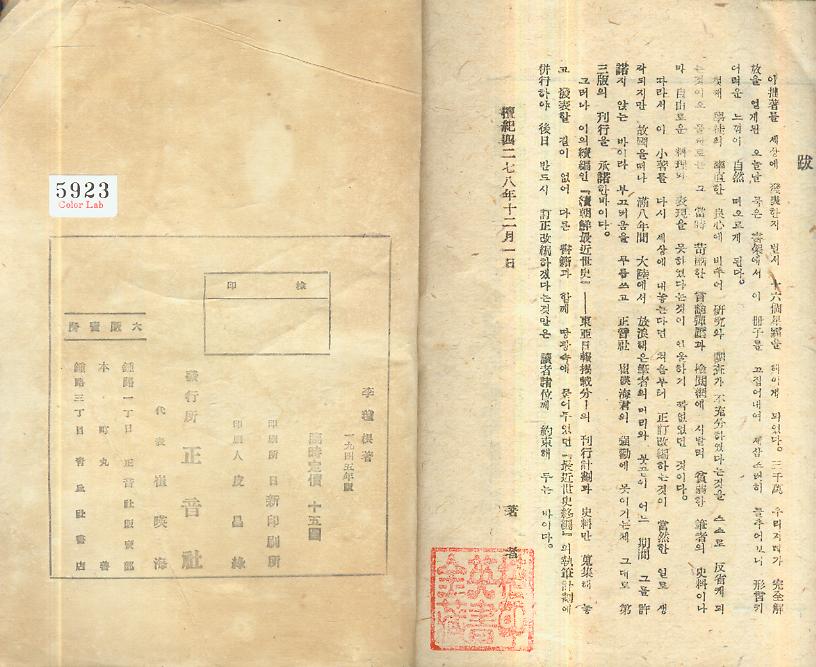 跋
이 拙著를 세상에 發表한지 벌서 十六個星霜을 헤이게 되였다. 三千萬 우리겨레가 完全解
放을 얻게된 오늘날 묵은 書架에서 이 冊子를 고집어내여 세삼스러히 들추어보니 形容키
어려운 느낌이 自然 떠오르게 된다.
첫재 學徒的 率直한 良心에 비추어 研究와 調査가 不充分하였다는것을 스스로 反省케 되
는것이오 둘재로는 그 當時 苛酷한 言論彈壓과 檢閱網에 시달려 貧弱한 筆者의 史料이나
마 自由로운 料理와 表現을 못하였다는것이 인움하기 짝없었던 것이다.
따라서 이 小著를 다시 세상에 내놓는다면 처음부터 正訂改編하는것이 當然한 일로 생
각되지만 故國을떠나 滿八年間 大陸에서 放浪해온筆者의 머리와 붓끝이 어느 期間 그를 許
諾지 않는 바이라 부끄러움을 무릅쓰고 正音社 崔暎海君의 强勸에 못이기는체 그대로 第
三版의 刊行을 承諾한바이다.
그러나 이의續編인『續朝鮮最近世史』——東亞日報揭載分——의 刊行計劃과 史料만 蒐集해 놓
고 發表할 길이 없어 다른 書籍과 함께 땅광속에 묻어두었던『最近世史終編』의執筆計劃에
併行하야 後日 반드시 訂正改編하겠다는것만은 讀者諸位께 約束해 두는 바이다.
檀紀四二七八年十二月一日
著者
5923
Color Lab
檢印
李瑄根著
一九四五年版
臨時定價 十五圓
印刷所 日新印刷所
印刷人 皮昌緣
發行所 正音社
代表 崔暎海
大販賣所
鍾路一丁目 正音社販賣部
本町 丸善
鍾路三丁目 靑丘社書店